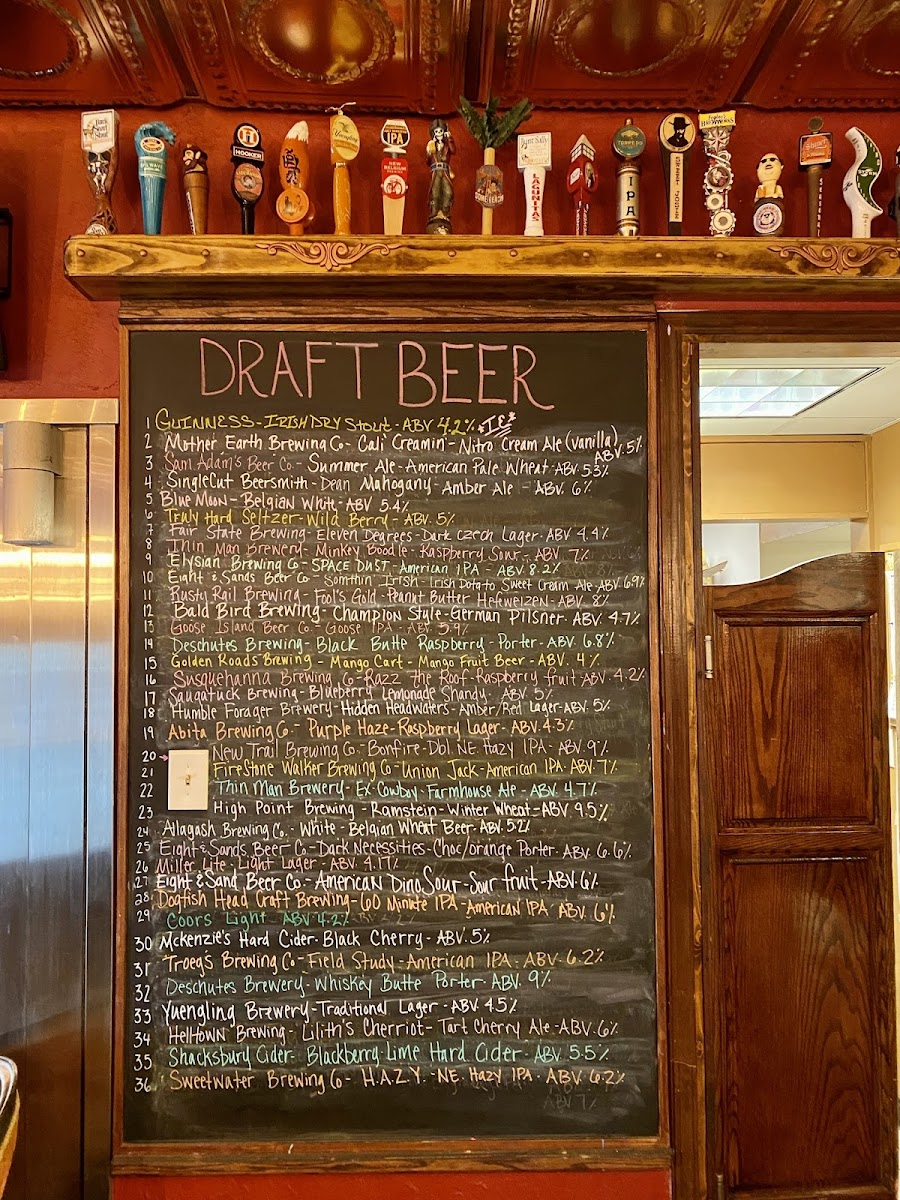 IPA
HOOKER
NEW BELGIUM
LAGUNITAS
IPA
DRAFT BEER
1 GUINNESS - IRISH DRY STOUT - ABV 4.2%
2 Mother Earth Brewing Co - Cali Creamin' - Nitro Cream Ale (vanilla), ABV. 5%
3 Sam Adam's Beer Co. - Summer Ale - American Pale Wheat - ABV 5.3%
4 SingleCut Beersmith - Dean Mahogany - Amber Ale - ABV. 6%
5 Blue Moon - Belgian White - ABV 5.4%
6 Truly Hard Seltzer - Wild Berry - ABV. 5%
7 Fair State Brewing - Eleven Degrees - Dark Czech Lager - ABV 4.4%
8 Thin Man Brewery - Minkey Boodle - Raspberry Sour - ABV. 7%
9 Elysian Brewing Co - SPACE DUST - American IPA - ABV 8.2%
10 Eight & Sands Beer Co - Somthin' Irish - Irish Potato Sweet Cream Ale - ABV 6.9%
11 Rusty Rail Brewing - Fool's Gold - Peanut Butter Hefeweizen - ABV. 8%
12 Bald Bird Brewing - Champion Style - German Pilsner - ABV. 4.7%
13 Goose Island Beer Co. - Goose IPA - ABV 5.9%
14 Deschutes Brewing - Black Butte Raspberry - Porter - ABV. 6.8%
15 Golden Roads Brewing - Mango Cart - Mango Fruit Beer - ABV. 4%
16 Susquehanna Brewing Co - Razz the Roof - Raspberry fruit ABV 4.2%
17 Saugatuck Brewing - Blueberry Lemonade Shandy - ABV. 5%
18 Humble Forager Brewery - Hidden Headwaters - Amber/Red Lager - ABV. 5%
19 Abita Brewing Co. - Purple Haze - Raspberry Lager - ABV 4.3%
20 New Trail Brewing Co. - Bonfire - Dbl. NE Hazy IPA - ABV. 9%
21 Firestone Walker Brewing Co - Union Jack - American IPA - ABV. 7%
22 Thin Man Brewery - Ex-Cowboy - Farmhouse Ale - ABV. 4.7%
23 High Point Brewing - Ramstein - Winter Wheat - ABV 9.5%
24 Allagash Brewing Co. - White - Belgian Wheat Beer - ABV. 5.2%
25 Eight & Sands Beer Co - Dark Necessities - Choc/orange Porter - ABV. 6.6%
26 Miller Lite - Light Lager - ABV. 4.17%
27 Eight & Sand Beer Co - American Dino Sour - Sour fruit - ABV. 6%
28 Dogfish Head Craft Brewing - 60 Minute IPA - American IPA ABV. 6%
29 Coors Light ABV 4.2%
30 Mckenzie's Hard Cider - Black Cherry - ABV. 5%
31 Troegs Brewing Co - Field Study - American IPA. ABV. 6.2%
32 Deschutes Brewery - Whiskey Butte Porter - ABV. 9%
33 Yuengling Brewery - Traditional Lager - ABV 4.5%
34 Helltown Brewing - Lilith's Cherriot - Tart Cherry Ale - ABV. 6%
35 Shacksbury Cider - Blackberry-Lime Hard Cider - ABV. 5.5%
36 Sweetwater Brewing Co - H.A.Z.Y. - NE. Hazy IPA - ABV. 6.2%
ABV 7%